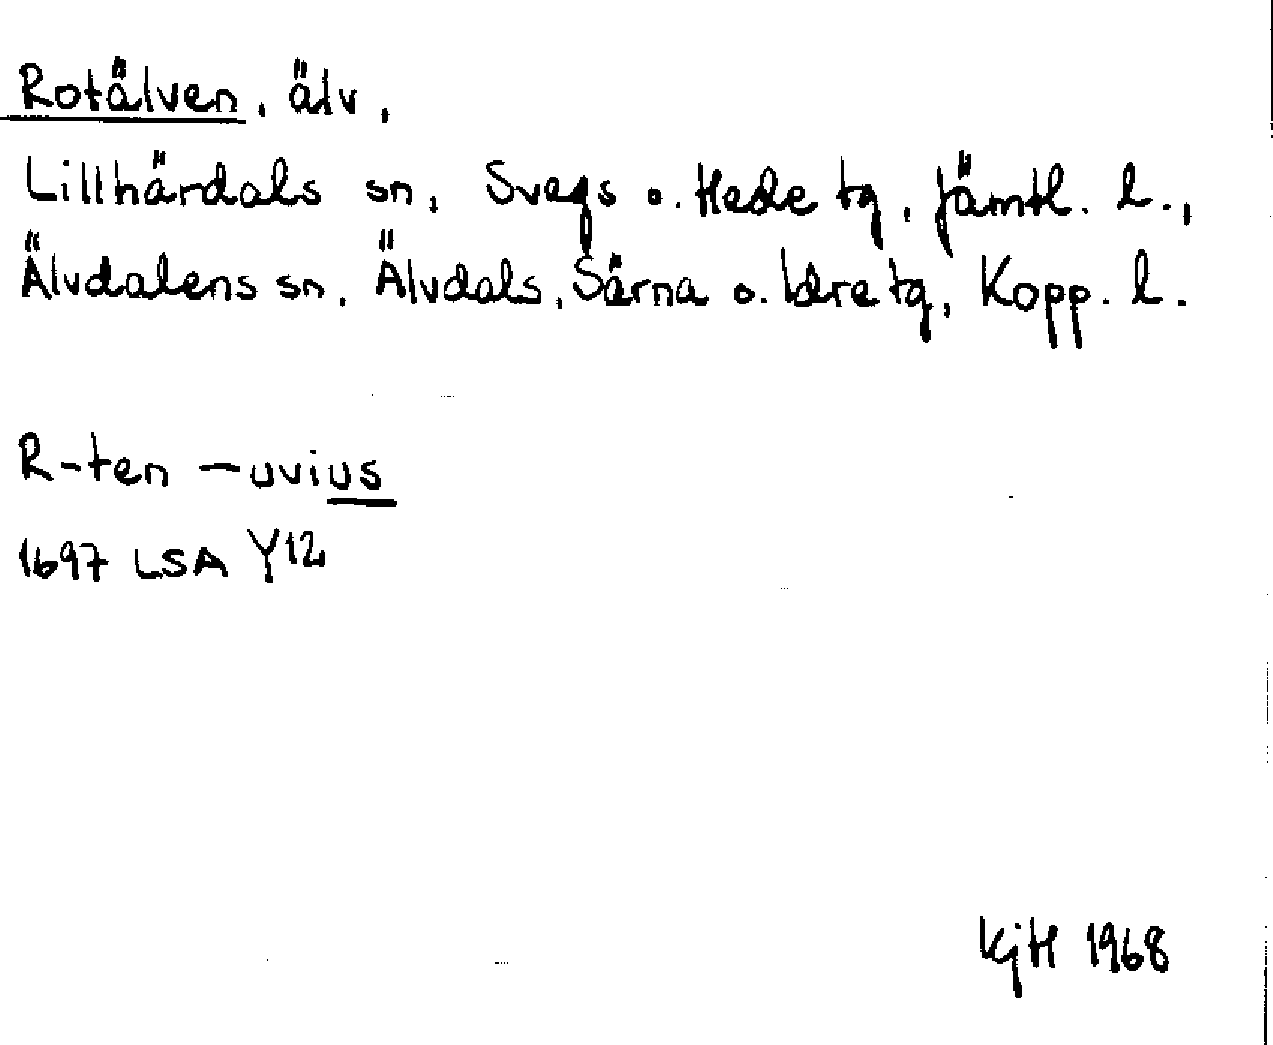 Rotälven, älv,
Lillhärdals sn, Svegs o. Hede tg, Jämtl. l.,
Älvdalens sn, Älvdals, Särna o. Idre tg, Kopp. l.
R-ten -uvius
1697 LSA Y12
KjH 1968